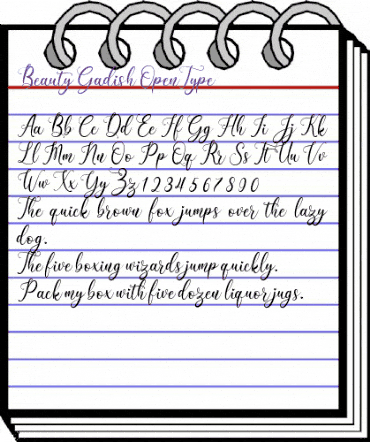 Beauty Gadish Open Type
Aa Bb Cc Dd Ee Ff Gg Hh Ii Jj Kk
Ll Mm Nn Oo Pp Qq Rr Ss Tt Uu Vv
Ww Xx Yy Zz 1 2 3 4 5 6 7 8 9 0
The quick brown fox jumps over the lazy
dog.
The five boxing wizards jump quickly.
Pack my box with five dozen liquor jugs.